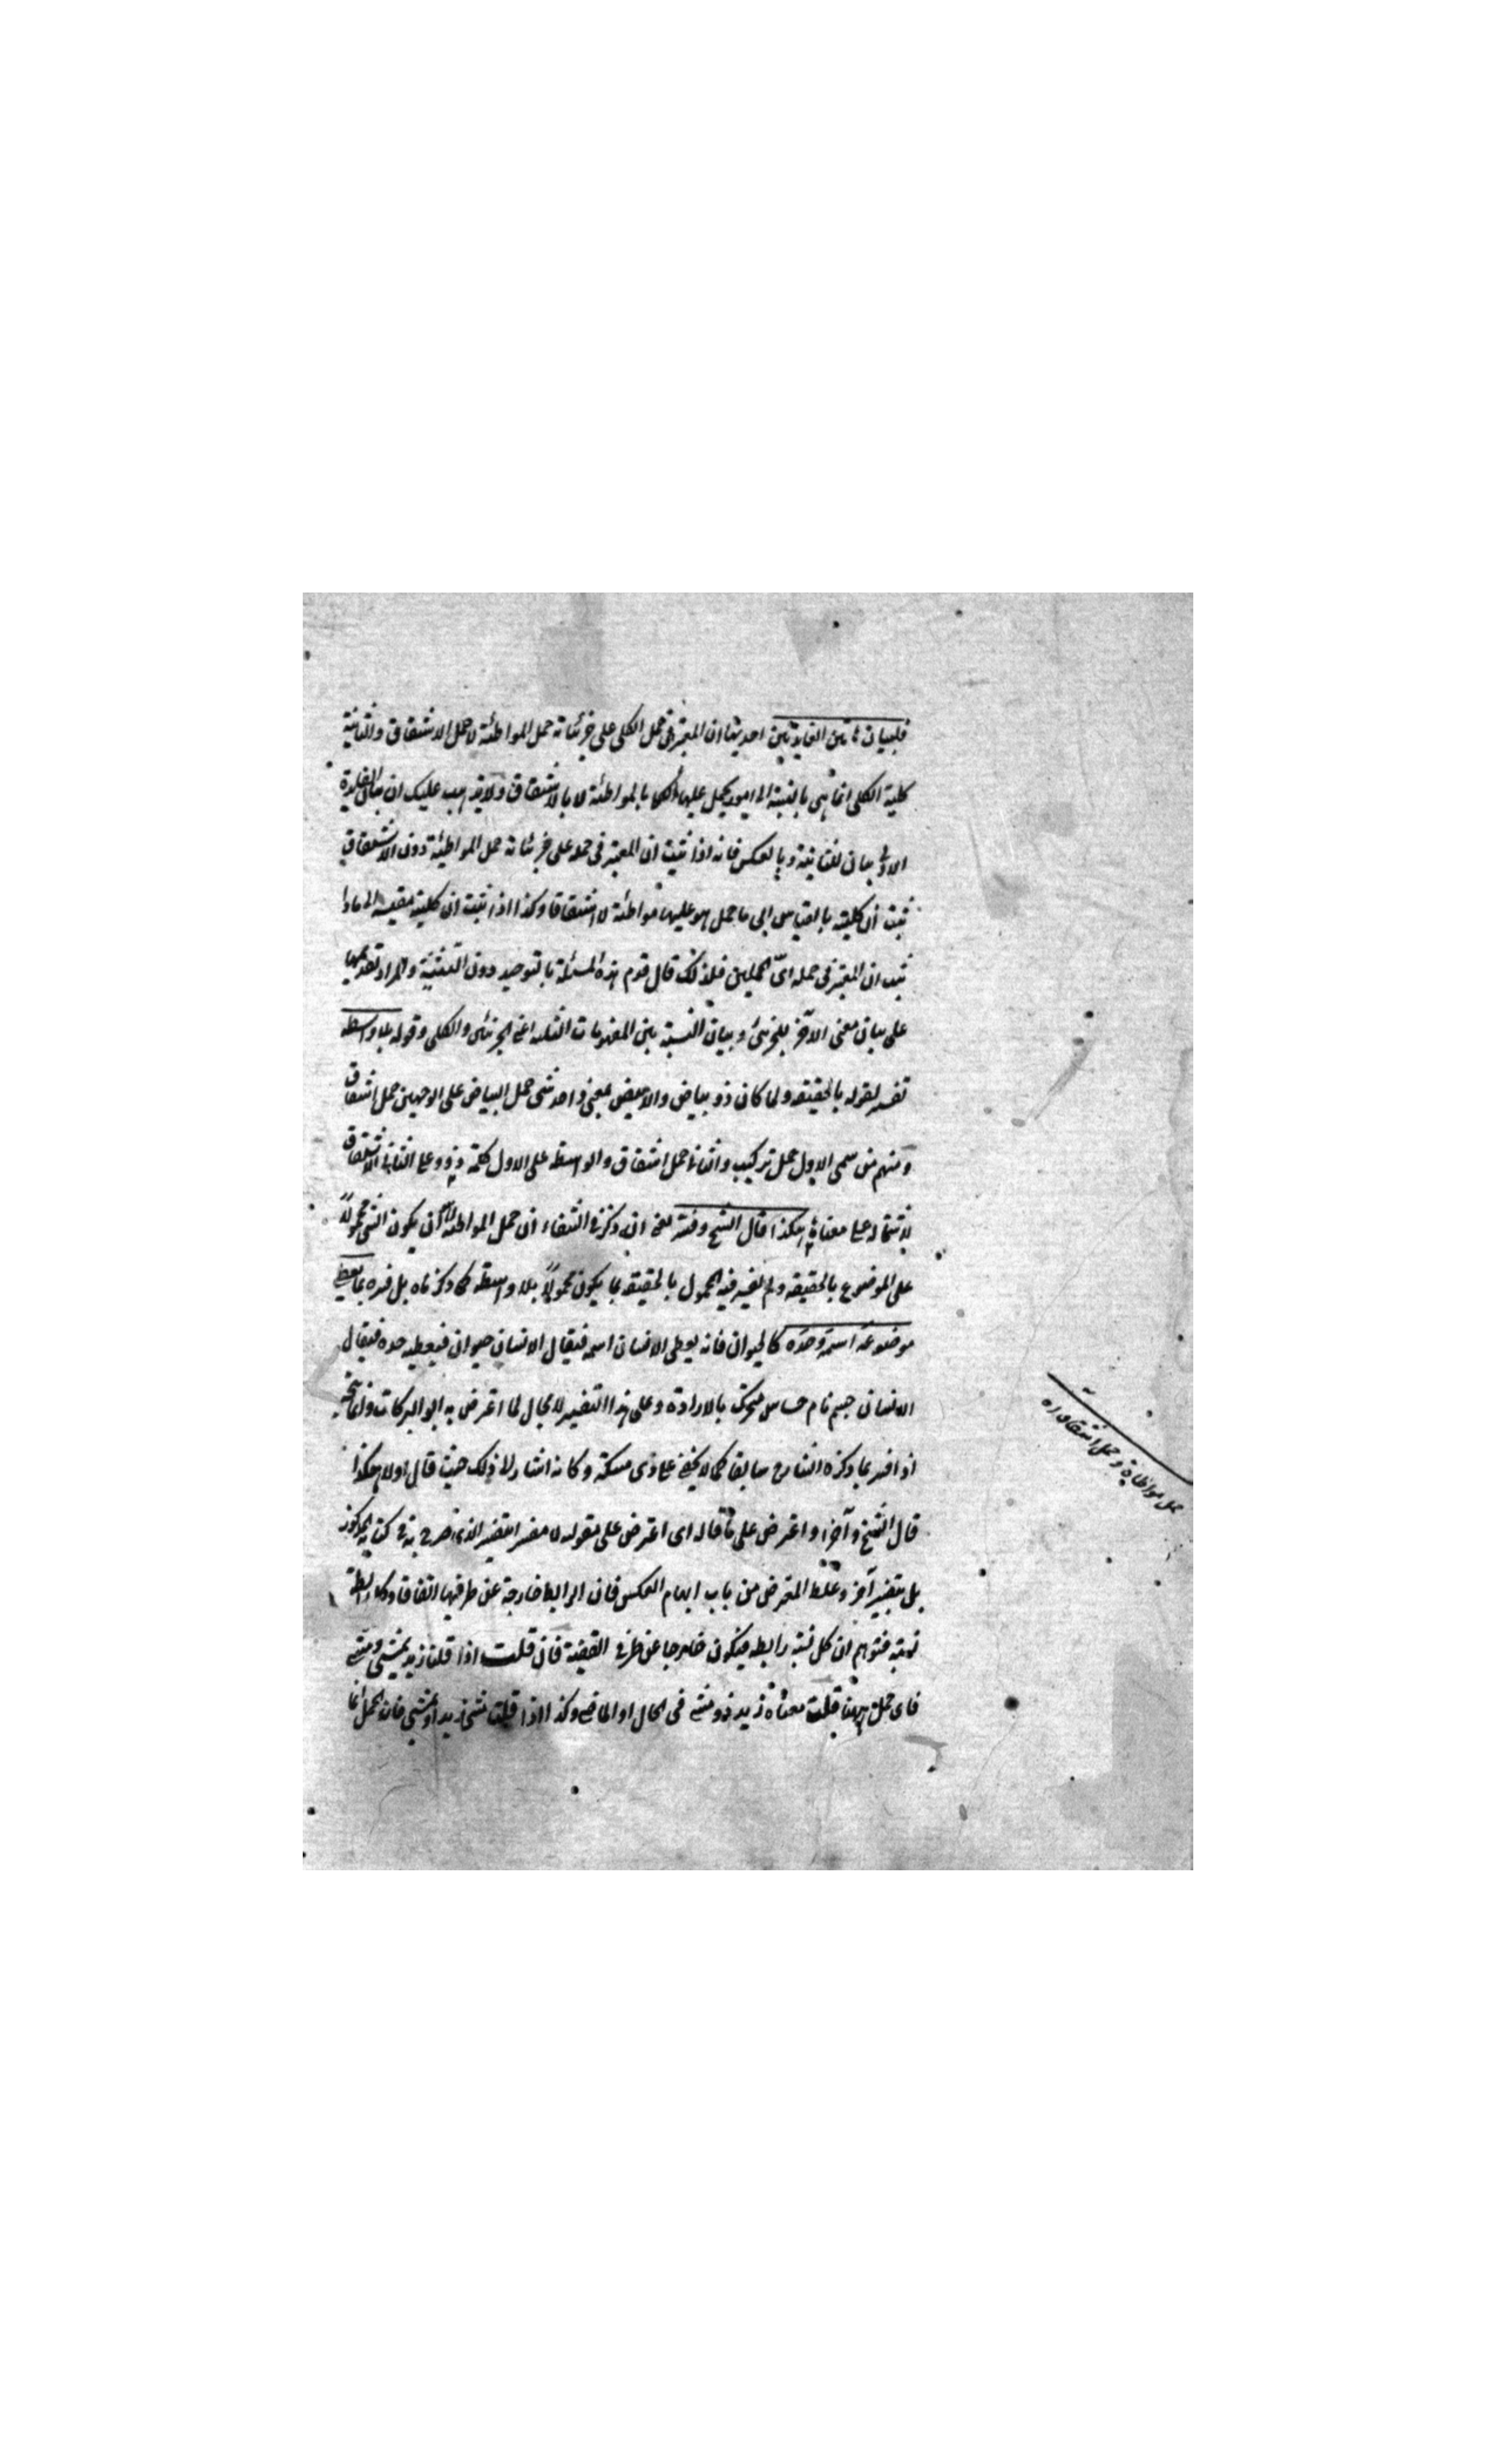 فلبيان هاتين الفايدتين احديهما ان المعتبر في حمل الكلي على جزئياته حمل المواطئة لا حمل الاشتقاق والثانية
كلية الكلي انما هي بالنسبة الى امور يحمل عليها الكلي بالمواطئة لا بالاشتقاق ولا يذهب عليك ان بيان الفايدة
الاولى بيان للثانية وبالعكس فانه اذا ثبت ان المعتبر في حمله على جزئياته حمل المواطئة دون الاشتقاق
ثبت ان كليته بالقياس الى ما حمل هو عليها مواطئة لا اشتقاقا وكذا اذا ثبت ان كليته مقيسه الى ماذا
ثبت ان المعتبر في حمله اىّ الحملين فلذلك قال قدم هذه المسئلة بالتوحيد دون التثنية والمراد تقديمها
على بيان معنى الآخر للجزئي وبيان النسبة بين المفهومات الثلثه اعني الجزئى والكلي وقوله بلا واسطه
تفسير لقوله بالحقيقه ولما كان ذو بياض والابيض بمعنى واحد سمى حمل البياض على الوجهين حمل اشتقاق
ومنهم من سمى الاول حمل تركيب والثاني حمل اشتقاق والواسطه على الاول كلمة ذو وعلى الثاني الاشتقاق
لاشتماله على معناها هكذا قال الشيخ وفسّره يعني انه ذكر في الشفاء ان حمل المواطئة ان يكون الشئ محمولاً
على الموضوع بالحقيقه ولم يفسر فيه المحمول بالحقيقه بما يكون محمولاً بلا واسطة كما ذكرناه بل فسره بما يعطى
موضوعه اسمه وحدّه كالحيوان فانه يعطى الانسان اسمه فيقال الانسان حيوان فيعطيه حده فيقال
الانسان جسم نام حساس متحرك بالارادة وعلى هذا التفسير لا مجال لما اعترض به ابو البركات وانما يتجه
اذا فسر بما ذكره الشارح سابقا كما لا يخفى على ذى مسكة وكانه اشار الى ذلك حيث قال اولا هكذا
قال الشيخ وآخرا واعترض على ما قاله اى اعترض على مقوله لا مفسرا بتفسير الذى صرح به في كتابه المذكور
بل بتفسير آخر وغلط المعترض من باب ايهام العكس فان الرابط خارجة عن طرفيها اتفاقا وكل رابطة
نسبة فتوهم ان كل نسبة رابطه فيكون خارجا عن طرفي القضية فان قلت اذا قلنا زيد يمشي ومشى
فاى حمل هنا قلت معناه زيد ذو مشي في الحال او الماضي وكذا اذا قلت مشى زيد او يمشي فان الحمل انما
حمل مواطاة وحمل اشتقاق